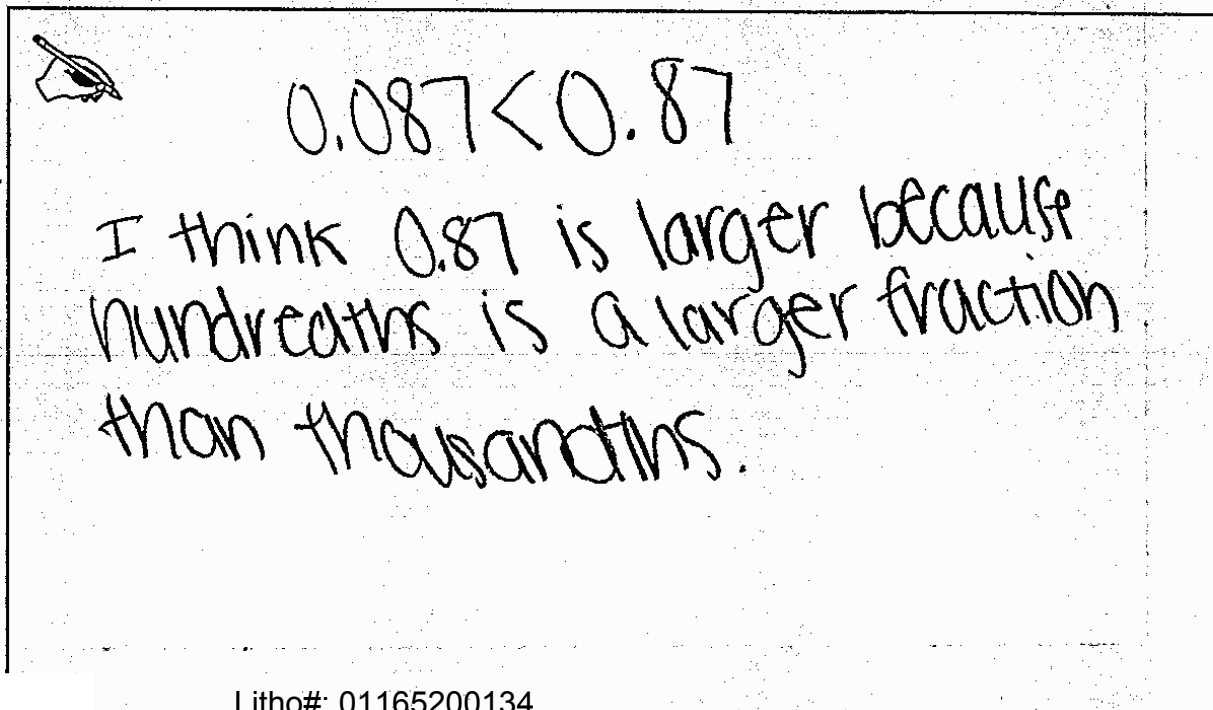 0.087<0.87
I think 0.87 is larger because
hundredths is a larger fraction
than thousandths.
Litho#: 01165200134